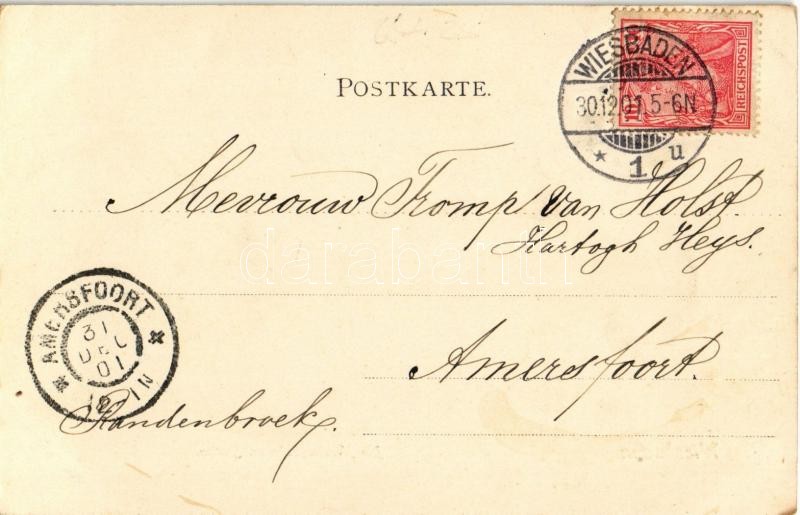 POSTKARTE.
REICHSPOST
WIESBADEN
30.12.01.5-6N
* 1 u
Mevrouw Tromp van Holst.
Hartogh Heys.
AMERSFOORT
31
DEC
01
Amersfoort.
Randenbroek.
darabanth